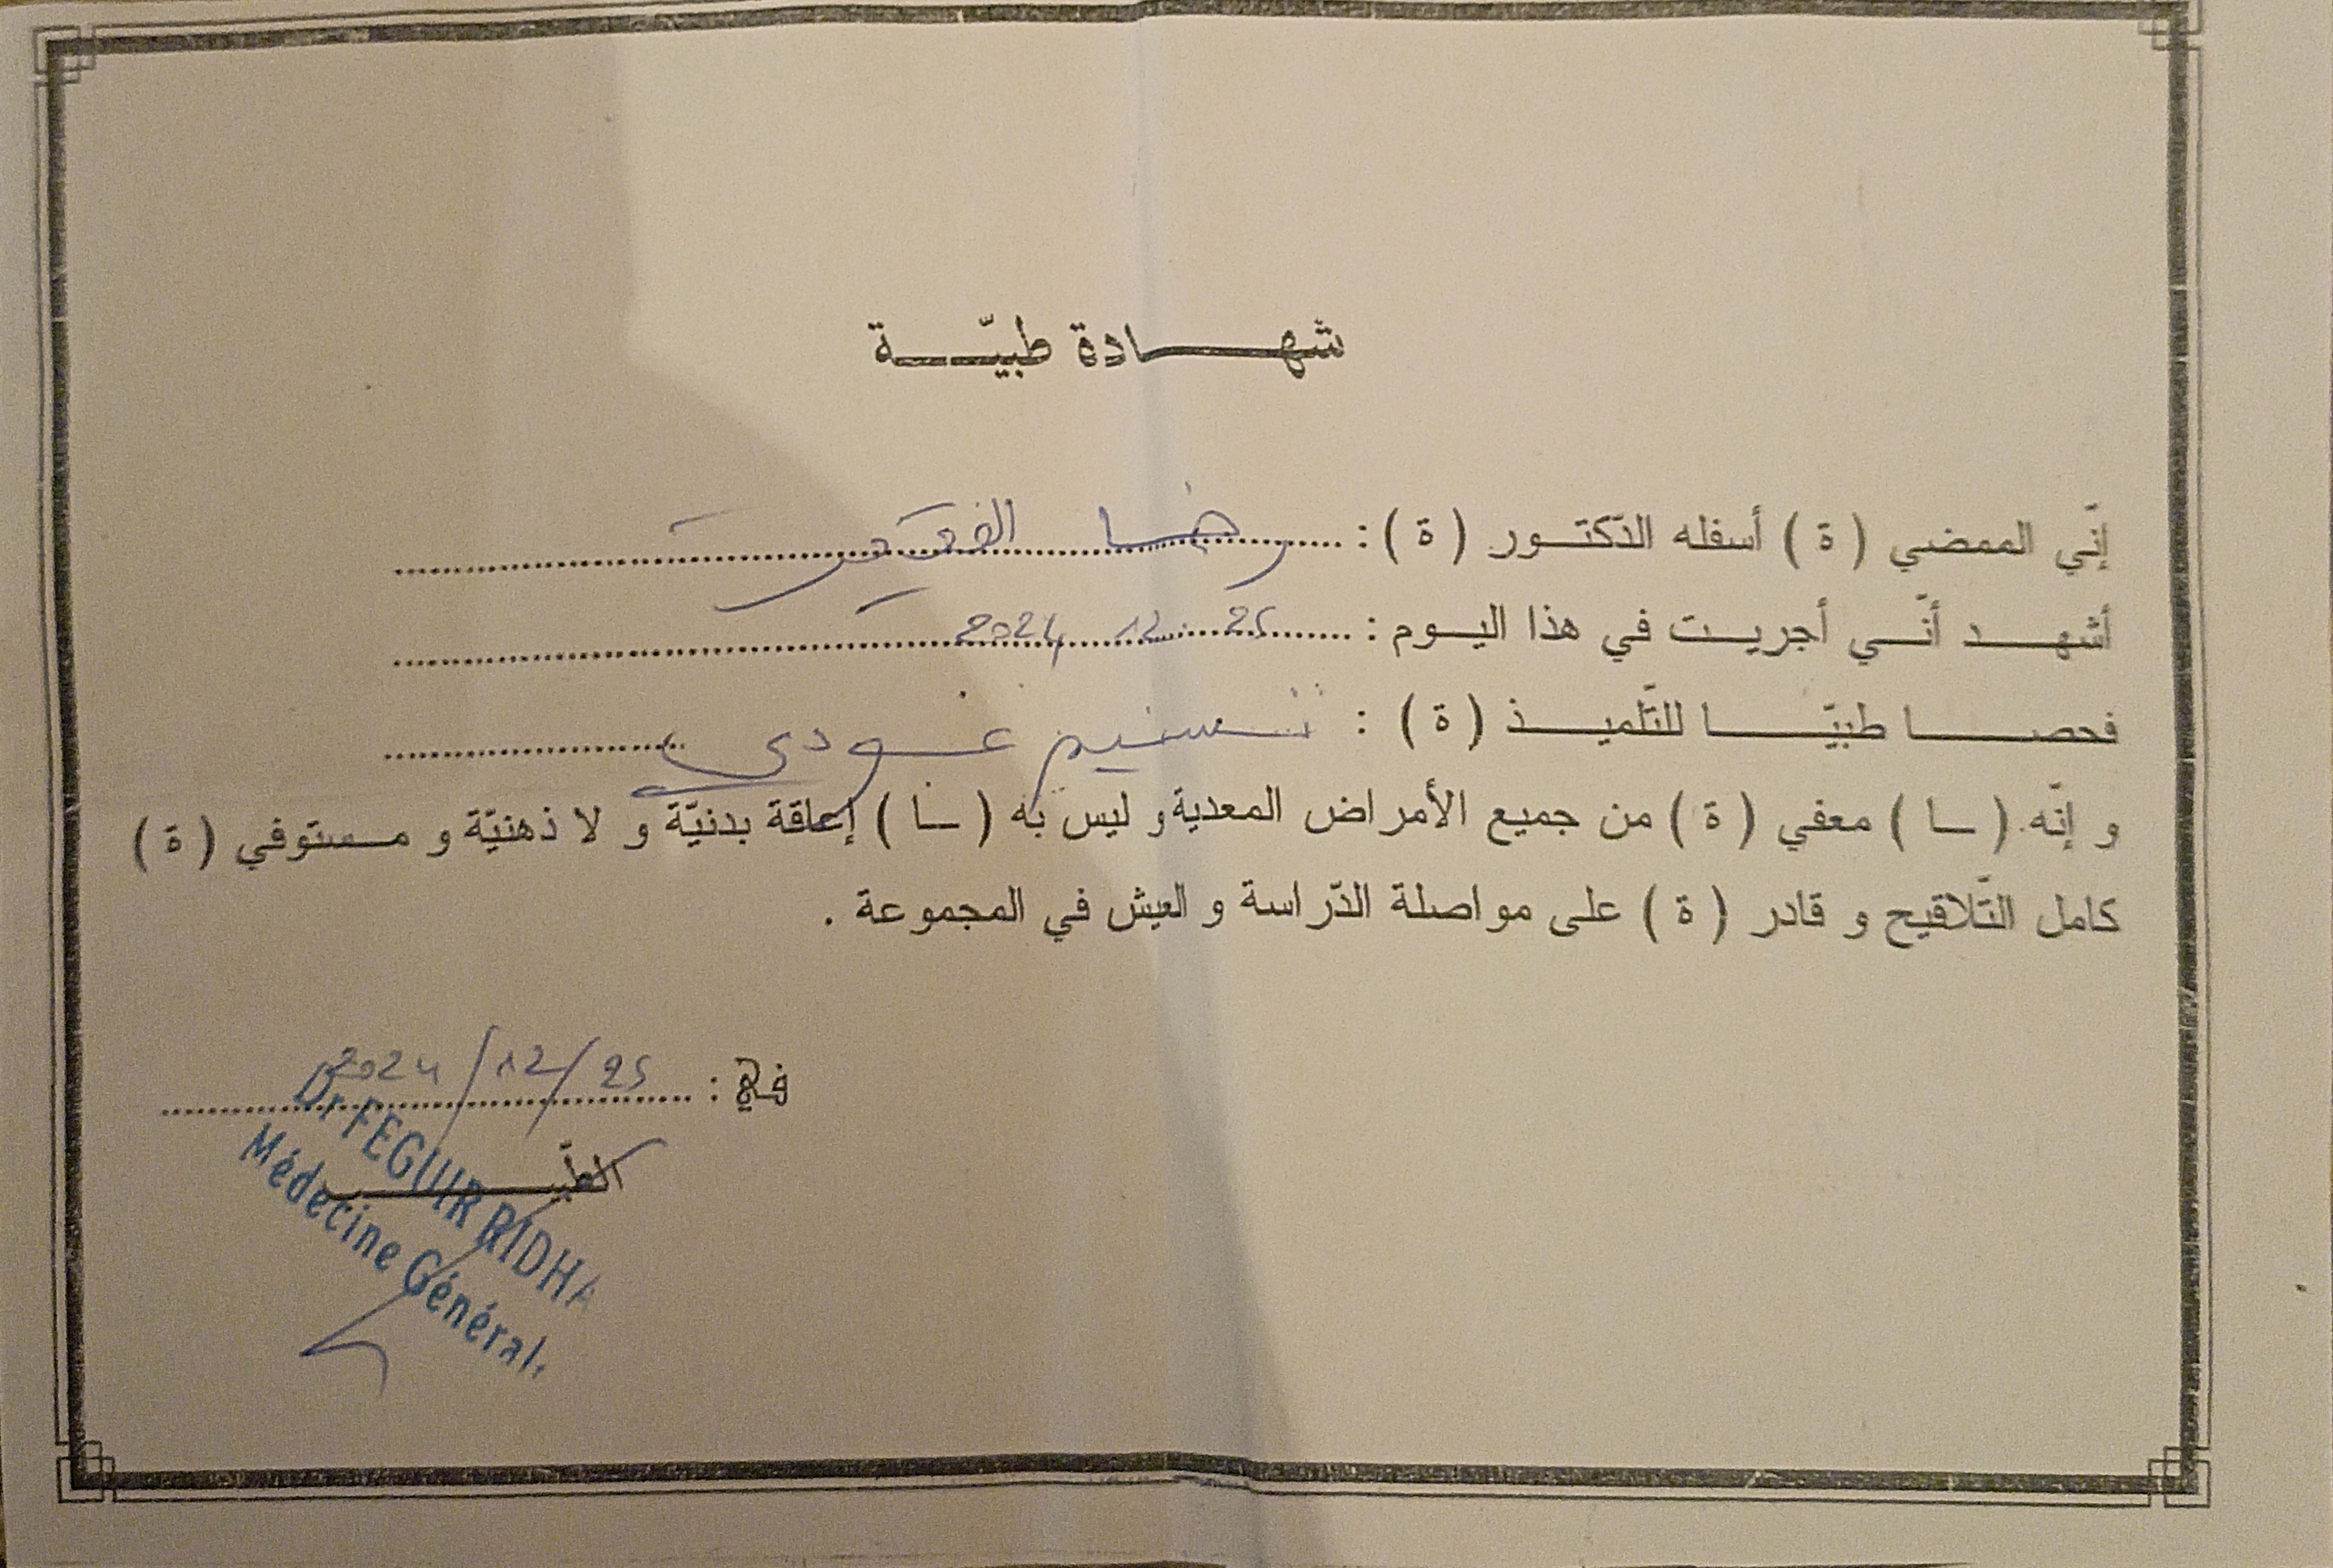 شهادة طبيّة
إنّي الممضي ( ة ) أسفله الدّكتور ( ة ) : رضا الفقير
أشهد أنّي أجريت في هذا اليوم : 25 12 2024
فحصا طبيّا للتّلميذ ( ة ) : تسنيم غودي
و إنّه ( ـا ) معفي ( ة ) من جميع الأمراض المعدية و ليس به ( ـا ) إعاقة بدنيّة و لا ذهنيّة و مستوفي ( ة )
كامل التّلاقيح و قادر ( ة ) على مواصلة الدّراسة و العيش في المجموعة .
في : 25/12/2024
الطبيب
Dr FEGUIR RIDHA
Médecine Général